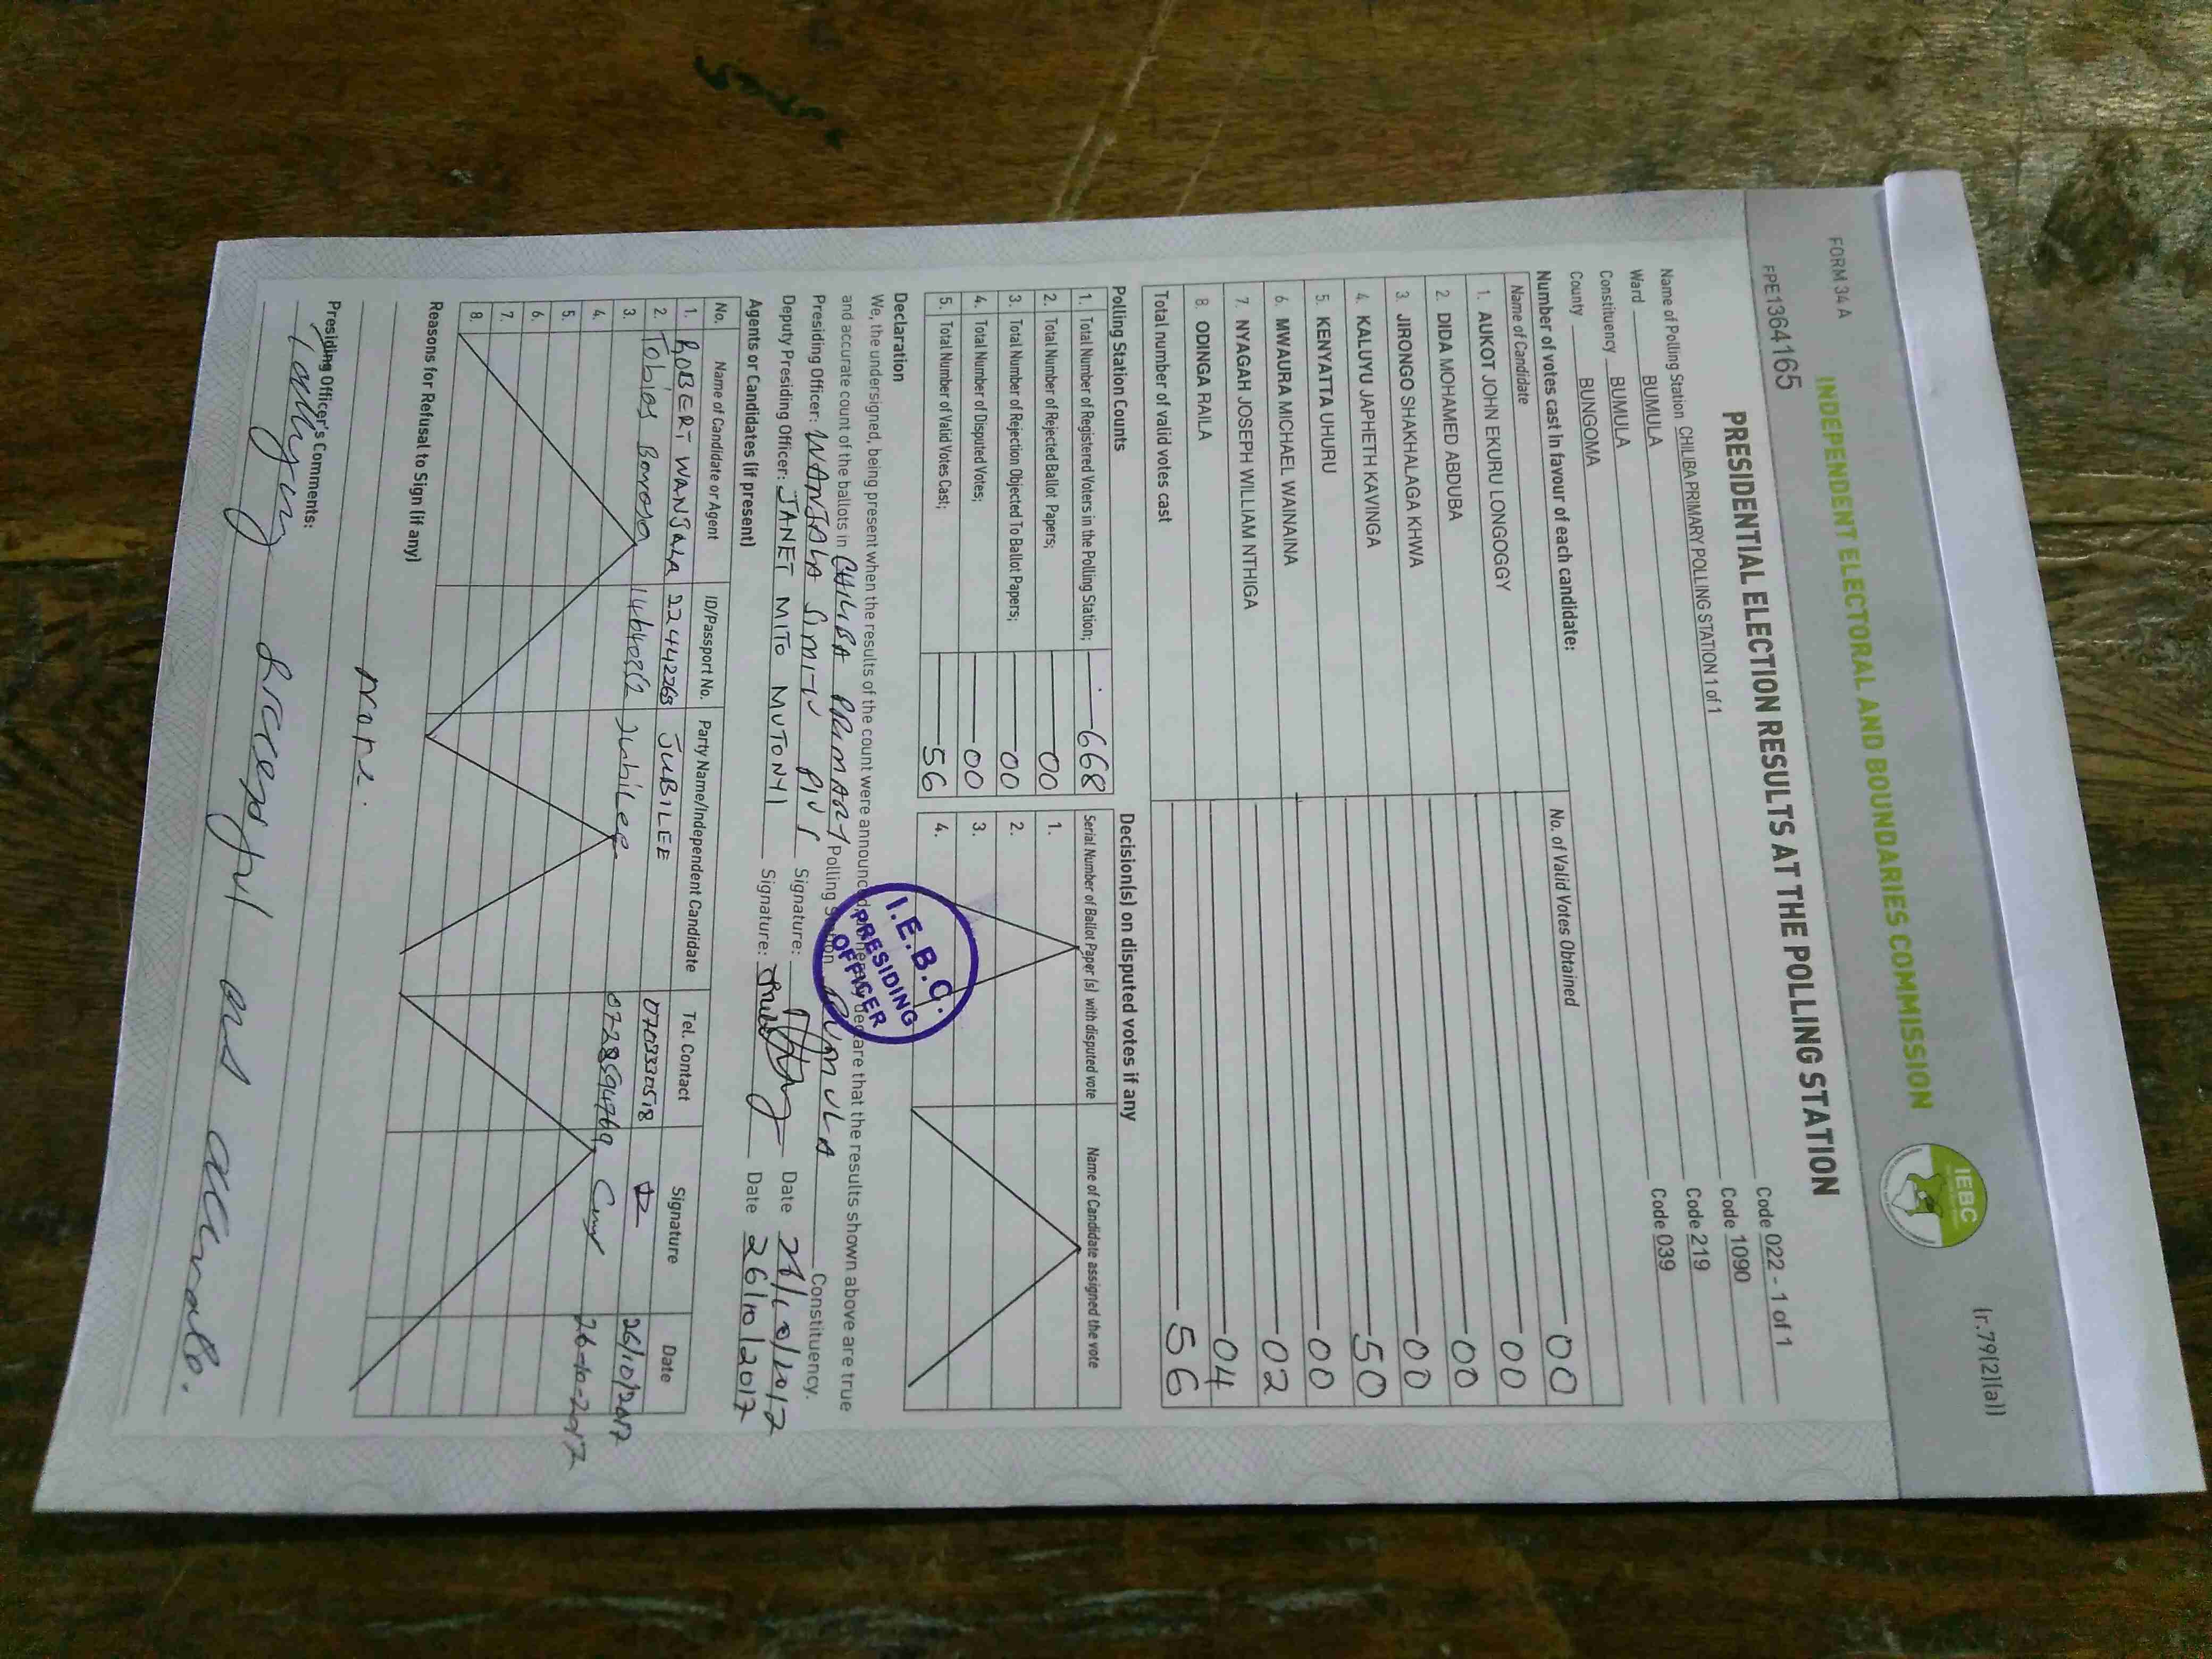 FORM 34 A
(r.79(2)(a))
INDEPENDENT ELECTORAL AND BOUNDARIES COMMISSION
IEBC
FPE1364165
PRESIDENTIAL ELECTION RESULTS AT THE POLLING STATION
Name of Polling Station CHILIBA PRIMARY POLLING STATION 1 of 1 Code 022 - 1 of 1
Ward BUMULA Code 1090
Constituency BUMULA Code 219
County BUNGOMA Code 039
Number of votes cast in favour of each candidate:
Name of Candidate No. of Valid Votes Obtained
1. AUKOT JOHN EKURU LONGOGGY 00
2. DIDA MOHAMED ABDUBA 00
3. JIRONGO SHAKHALAGA KHWA 00
4. KALUYU JAPHETH KAVINGA 00
5. KENYATTA UHURU 50
6. MWAURA MICHAEL WAINAINA 00
7. NYAGAH JOSEPH WILLIAM NTHIGA 02
8. ODINGA RAILA 04
Total number of valid votes cast 56
Polling Station Counts
1. Total Number of Registered Voters in the Polling Station; 668
2. Total Number of Rejected Ballot Papers; 00
3. Total Number of Rejection Objected To Ballot Papers; 00
4. Total Number of Disputed Votes; 00
5. Total Number of Valid Votes Cast; 56
Decision(s) on disputed votes if any
Serial Number of Ballot Paper (s) with disputed vote Name of Candidate assigned the vote
1.
2.
3.
4.
Declaration
We, the undersigned, being present when the results of the count were announced, do hereby declare that the results shown above are true
and accurate count of the ballots in CHILIBA PRIMARY Polling Station BUMULA Constituency.
Presiding Officer: WANJALA SIMIYU PIUS Signature: Date 26/10/2017
Deputy Presiding Officer: JANET MITO MUTONYI Signature: Date 26/10/2017
I.E.B.C.
PRESIDING
OFFICER
Agents or Candidates (if present)
No. Name of Candidate or Agent ID/Passport No. Party Name/Independent Candidate Tel. Contact Signature Date
1. ROBERT WANJALA 22442265 JUBILEE 0703330518 26/10/2017
2. Tobias Barasa Jubilee 26-10-2017
3.
4.
5.
6.
7.
8.
Reasons for Refusal to Sign (if any)
None.
Presiding Officer's Comments:
Tallying Successful and accurate.